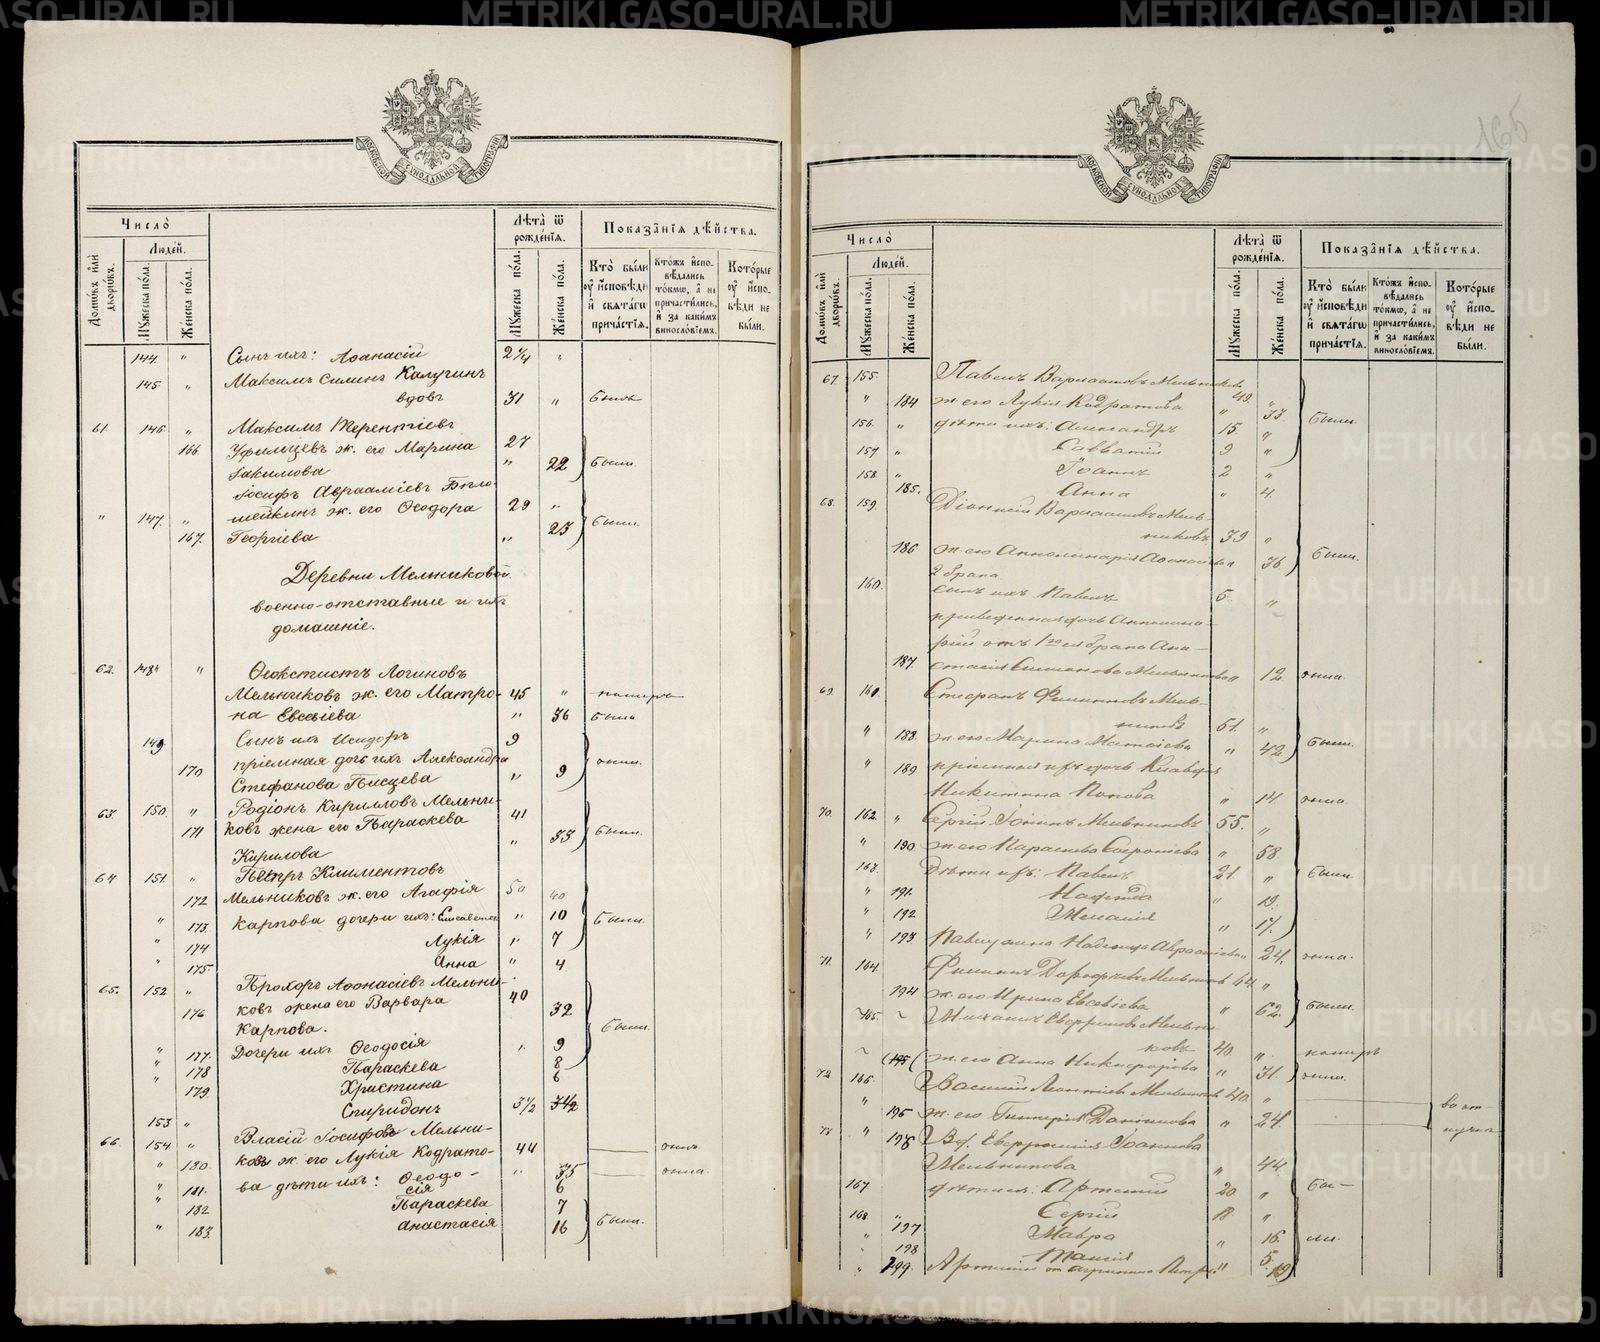 METRIKI.GASO-URAL.RU
165
МОСКОВСКОЙ СУНОДАЛЬНОЙ ТИПОГРАФІИ
Число̀
Людей.
Лѣта̀ ѿ рожденїѧ.
Показа̑нїѧ дѣйства.
Домѡвъ и҆лѝ дворѡвъ.
Мꙋжеска по́ла.
Же́нска по́ла.
Мꙋжеска по́ла.
Же́нска по́ла.
Кто̀ бы́ли оу҆ и҆сповѣди и҆ свѧтагѡ причастїѧ.
Ктожъ и҆сповѣдались то́кмѡ, а҆ не причастились, и҆ за какимъ винословїемъ.
Кото́рые оу҆ и҆сповѣди не бы́ли.
144. " Сынъ ихъ: Афанасій 2 1/4 "
145. " Максимъ Силинъ Калугинъ
вдовъ 31 " былъ
61. 146. " Максимъ Терентіевъ
166. Уфимцевъ ж. его Марина 27
Іакимова " 22 были
Іосифъ Авраамиевъ Бѣло-
" 147. " шейкинъ ж. его Ѳеодора 29 "
167. Георгіева " 23 были.
Деревни Мельниковой
военно-отставные и ихъ
домашніе.
62. 148. " Ѳеоктистъ Логиновъ
Мельниковъ ж. его Матро- 45 "
на Евсевіева " 36 была
149. Сынъ ихъ Исидоръ 9
170 пріемная дочь ихъ Александра
Стефанова Писцева " 9
63. 150. " Родіонъ Кирилловъ Мельни-
171 ковъ жена его Параскева 41
Кирилова " 33 были.
64 151. " Петръ Климентовъ
172 Мельниковъ ж. его Агафія 50 40
" 173. Карпова дочери ихъ: Елисавета " 10 были.
" 174 Лукія " 7
" 175 Анна " 4
65. 152 " Прохоръ Афонасіевъ Мельни-
176 ковъ жена его Варвара 40 32
Карпова. были.
" 177. Дочери ихъ Ѳеодосія " 9
" 178 Параскева 8
" 179 Христина 6
153 " Спиридонъ 3 1/2
66. 154 " Власій Іосифовъ Мельни-
" 180 ковъ ж. его Лукія Кодрато- 44
" 181. ва дѣти ихъ: Ѳеодо- " 35
сія 6
" 182 Параскева 7
" 183. Анастасія 16 были.
Число̀
Людей.
Лѣта̀ ѿ рожденїѧ.
Показа̑нїѧ дѣйства.
Домѡвъ и҆лѝ дворѡвъ.
Мꙋжеска по́ла.
Же́нска по́ла.
Мꙋжеска по́ла.
Же́нска по́ла.
Кто̀ бы́ли оу҆ и҆сповѣди и҆ свѧтагѡ причастїѧ.
Ктожъ и҆сповѣдались то́кмѡ, а҆ не причастились, и҆ за какимъ винословїемъ.
Кото́рые оу҆ и҆сповѣди не бы́ли.
67. 155. Павелъ Варлаамовъ Мельниковъ 42 "
" 184 ж. его Лукія Кодратова " 33 были.
156. " дѣти ихъ: Александръ 15 "
157 " Савватій 9 "
158. " Іоаннъ 2 "
185. Анна " 4.
68. 159. Діонисій Варлаамовъ Мель-
никовъ 39 "
186 ж. его Апполинарія Афонасіева " 36 были.
2 брака
160. сынъ ихъ Павелъ 5. "
приведенная дочь Апполина-
рій отъ 1го брака Ана-
187. стасія Симеонова Мельникова " 12
69. 161. Стефанъ Филипповъ Мель-
никовъ 51. "
" 188. ж. его Марина Матвіева " 42 были.
" 189 пріемная ихъ дочь Клавдія
Никитина Попова " 14.
70. 162. " Сергій Іонинъ Мельниковъ 55. "
" 190 ж. его Параскева Софроніева " 58
163. Дѣти ихъ: Павелъ 21. " были.
" 191. Надежда " 19.
" 192 Меланія " 17.
" 193 Павлушина Надежда Авраамиева " 24.
71. 164. Филиппъ Дорофеевъ Мельниковъ 64 "
194 ж. его Ирина Евсевіева " 62. были.
165. Михаилъ Евфимовъ Мельни-
ковъ 40. "
195 ж. его Анна Никифорова " 31.
72. 166. Василій Леонтіевъ Мельниковъ 40 "
" 195 ж. его Гликерія Данилова " 24.
73 " 196 Вд. Евфросинія Іоаннова
Мельникова " 44
167 дѣти ея: Артемій 20 " бы-
168. " Сергій 18. "
" 197 Мавра " 16. ли.
198 Таисія 5.
" 199.